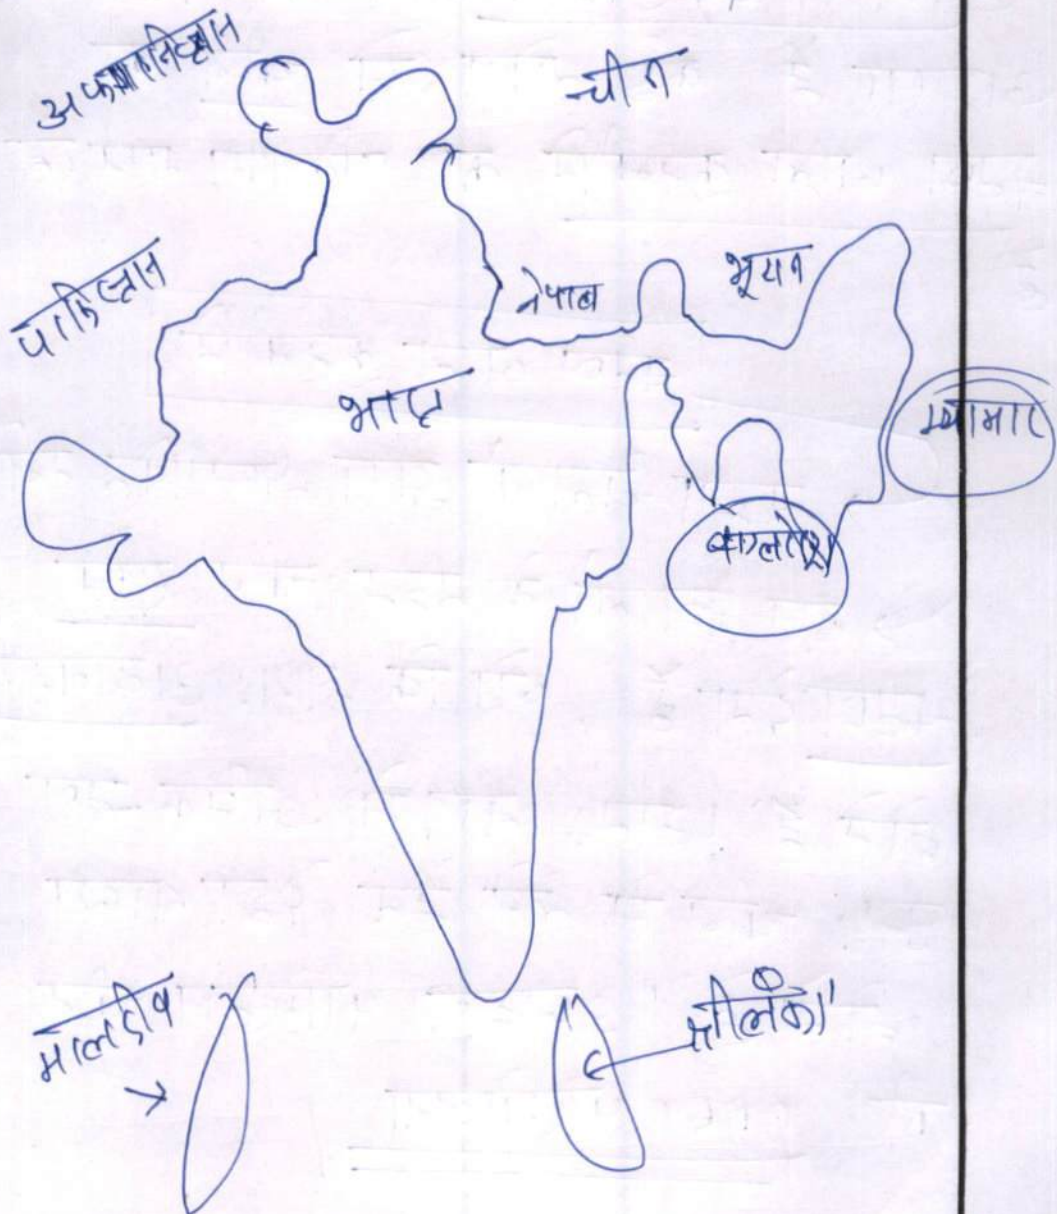 अफगानिस्तान
चीन
पाकिस्तान
नेपाल
भूटान
भारत
म्यांमार
बांग्लादेश
मालदीव
श्रीलंका